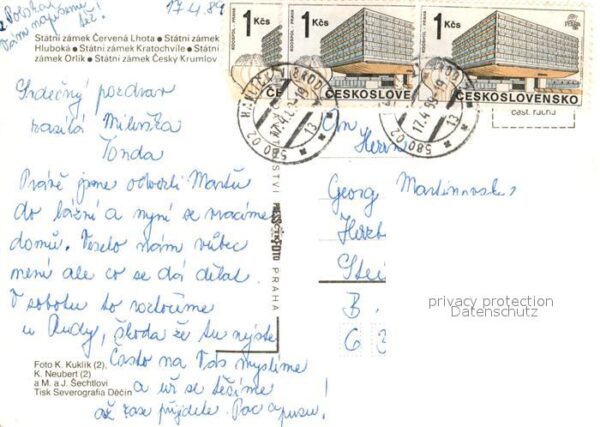 z Polska
Vám napíšeme!
17.4.89
Státní zámek Červená Lhota • Státní zámek
Hluboká • Státní zámek Kratochvíle • Státní
zámek Orlík • Státní zámek Český Krumlov
Srdečný pozdrav
zasílá Miluška
Tonda
Právě jsme odvezli Martu
do lázní a nyní se vracíme
domů. Veselo nám vůbec
není ale co se dá dělat
V sobotu to roztočíme
u Andy, škoda že tu nejste
Často na Vás myslíme
a už se těšíme
až zase přijdete. Pac a pusu!
Foto K. Kuklík (2),
K. Neubert (2)
a M. a J. Šechtlovi
Tisk Severografia Děčín
PRESSFOTO PRAHA
1 Kčs
1 Kčs
1 Kčs
ČESKOSLOVE
ČESKOSLOVENSKO
580 02
17.4.
13
580 02
17.4.
13
Georg
privacy protection
Datenschutz
B.